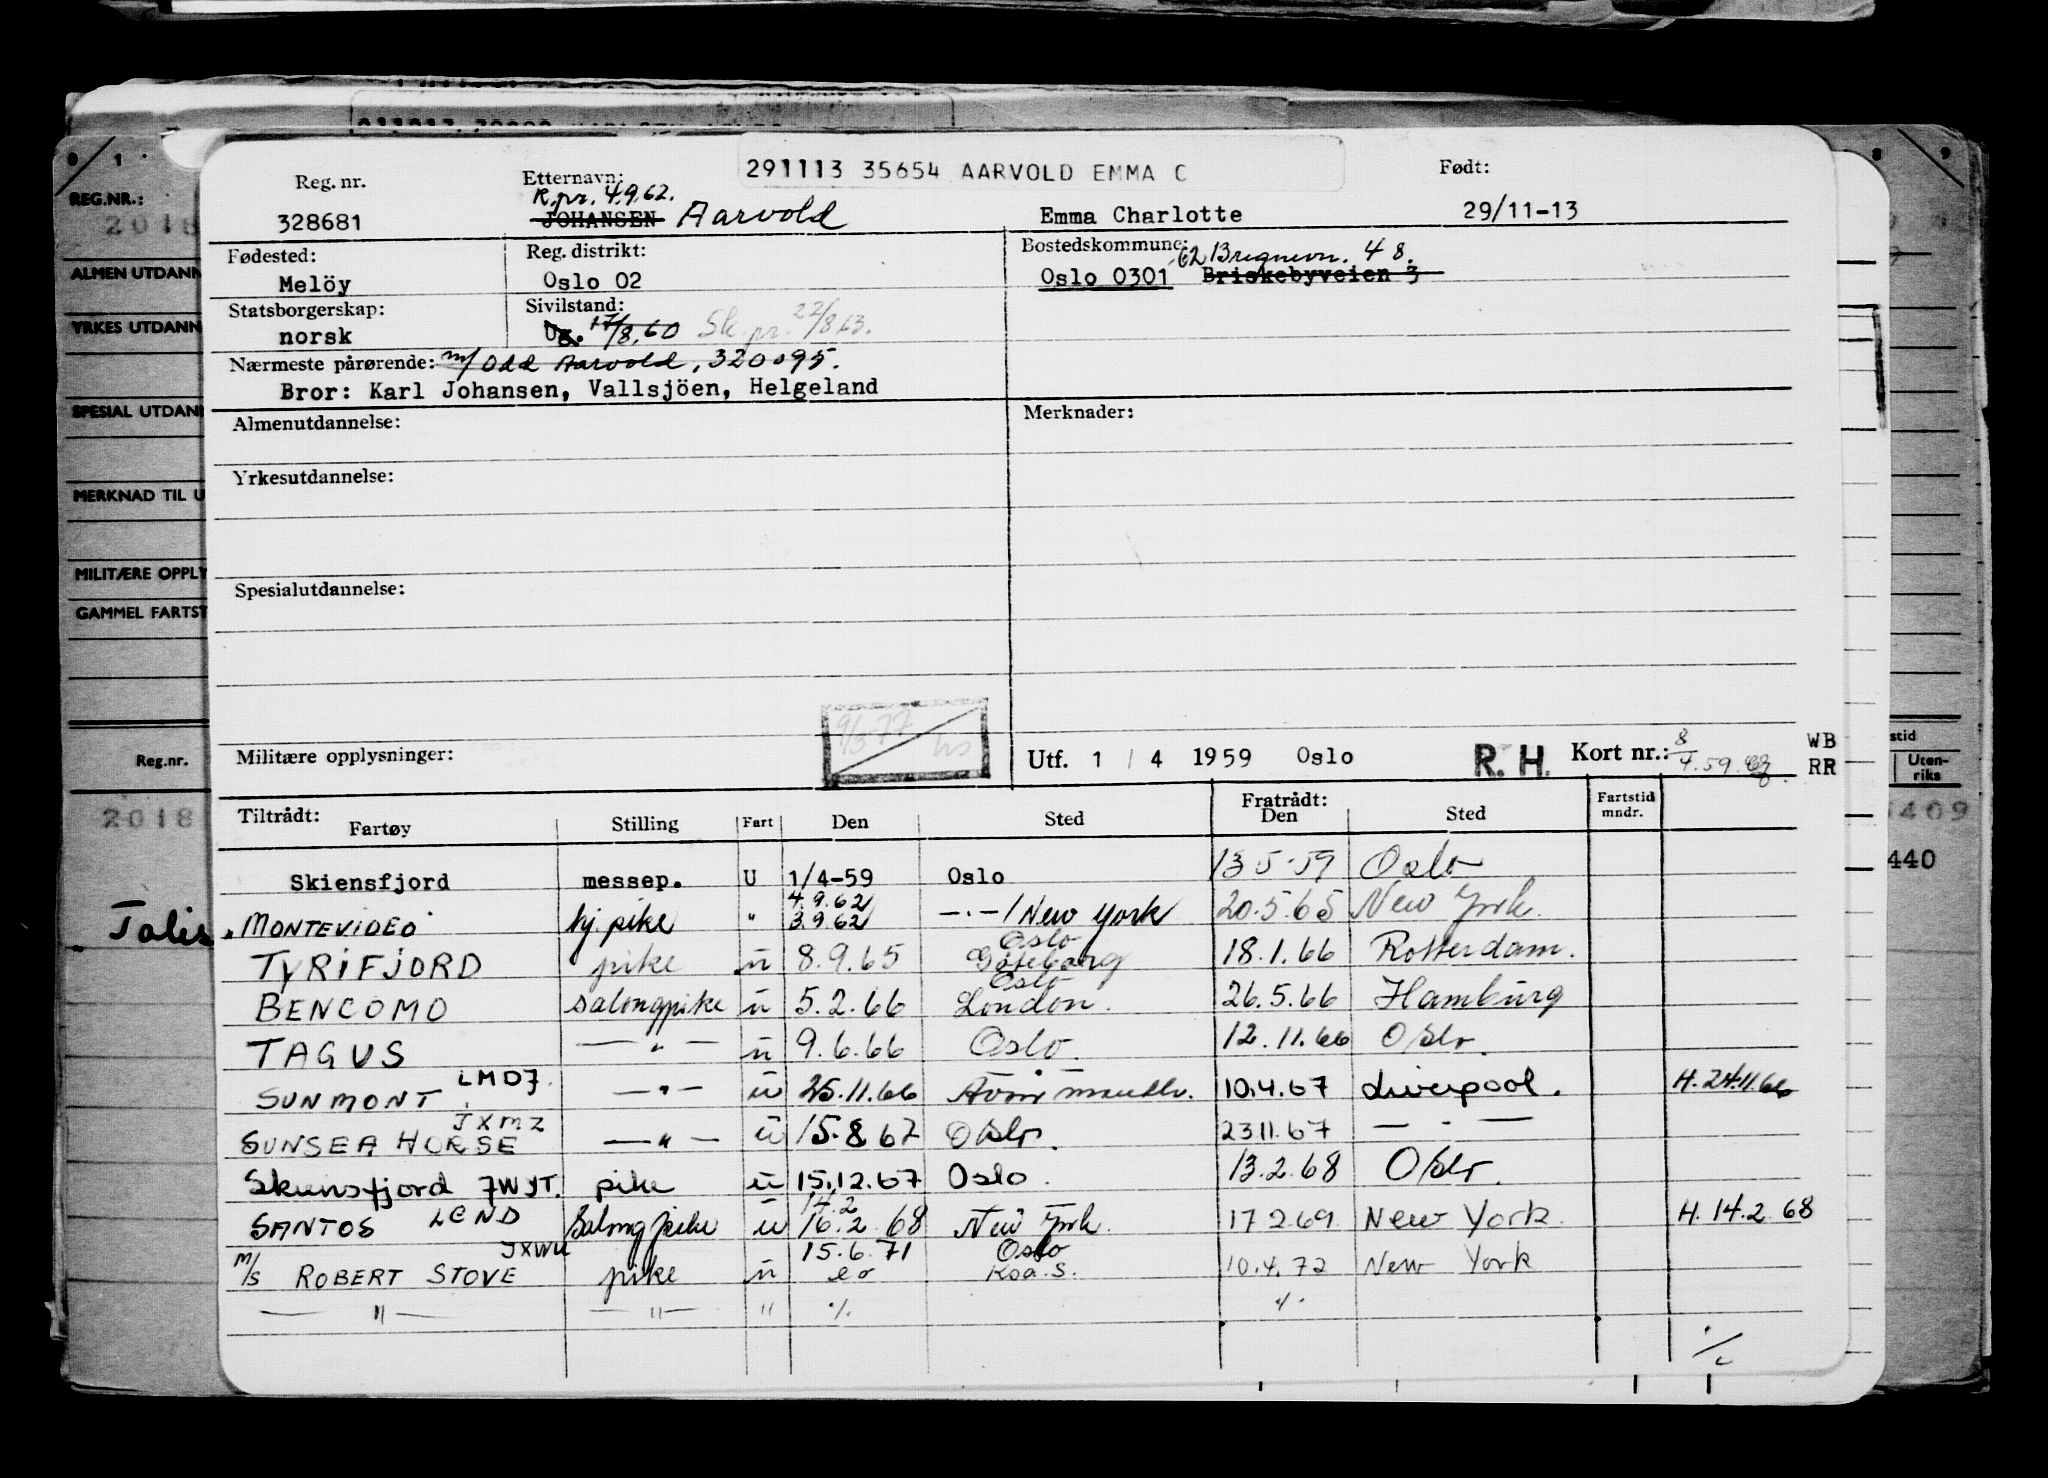 291113 35654 AARVOLD EMMA C
Reg. nr. Etternavn: Født:
R.pr. 4.9.62.
328681 JOHANSEN Aarvold Emma Charlotte 29/11-13
Fødested: Reg. distrikt: Bostedskommune:
Melöy Oslo 02 Oslo 0301 Briskebyveien 3
Statsborgerskap: Sivilstand:
norsk Ug. 17/8.60 Sk. pr. 22/8 63.
Nærmeste pårørende: m/Odd Aarvold, 320095.
Bror: Karl Johansen, Vallsjöen, Helgeland
Almenutdannelse: Merknader:
Yrkesutdannelse:
Spesialutdannelse:
9/3 77
Militære opplysninger: Utf. 1 / 4 1959 Oslo R. H. Kort nr.: WB
RR
Tiltrådt: Fratrådt: Fartstid
Fartøy Stilling Fart Den Sted Den Sted mndr.
Skiensfjord messep. U 1/4-59 Oslo 13 5-59 Oslo
4.9.62
MONTEVIDEO kj. pike " 3.9.62 —·—/New York 20.5.65 New York.
Oslo
TYRIFJORD pike u 8.9.65 Göteborg 18.1.66 Rotterdam.
Oslo
BENCOMO salongpike u 5.2.66 London. 26.5.66 Hamburg
TAGUS — " — u 9.6.66 Oslo. 12.11.66 Oslo.
SUNMONT LMDJ. — " — u 25.11.66 10.4.67 Liverpool. H. 24.11.66
JXMZ
SUNSEA HORSE — " — u 15.8 67 Oslo. 23 11.67 — - —
Skiensfjord JWJT. pike u 15.12.67 Oslo. 13.2.68 Oslo.
14.2
SANTOS LCND Salongpike u 16.2.68 New York. 17 2 69. New York. H. 14.2.68
JXWU 15.6.71 Oslo
m/s ROBERT STOVE pike u Koa.S. 10.4.72 New York
— " — — " — " ./. ./.
REG.NR.:
2018
ALMEN UTDANN
YRKES UTDANN
SPESIAL UTDANN
MERKNAD TIL U
MILITÆRE OPPLY
GAMMEL FARTST
Reg.nr.
2018
Talis
stid
Uten-
riks
409
440